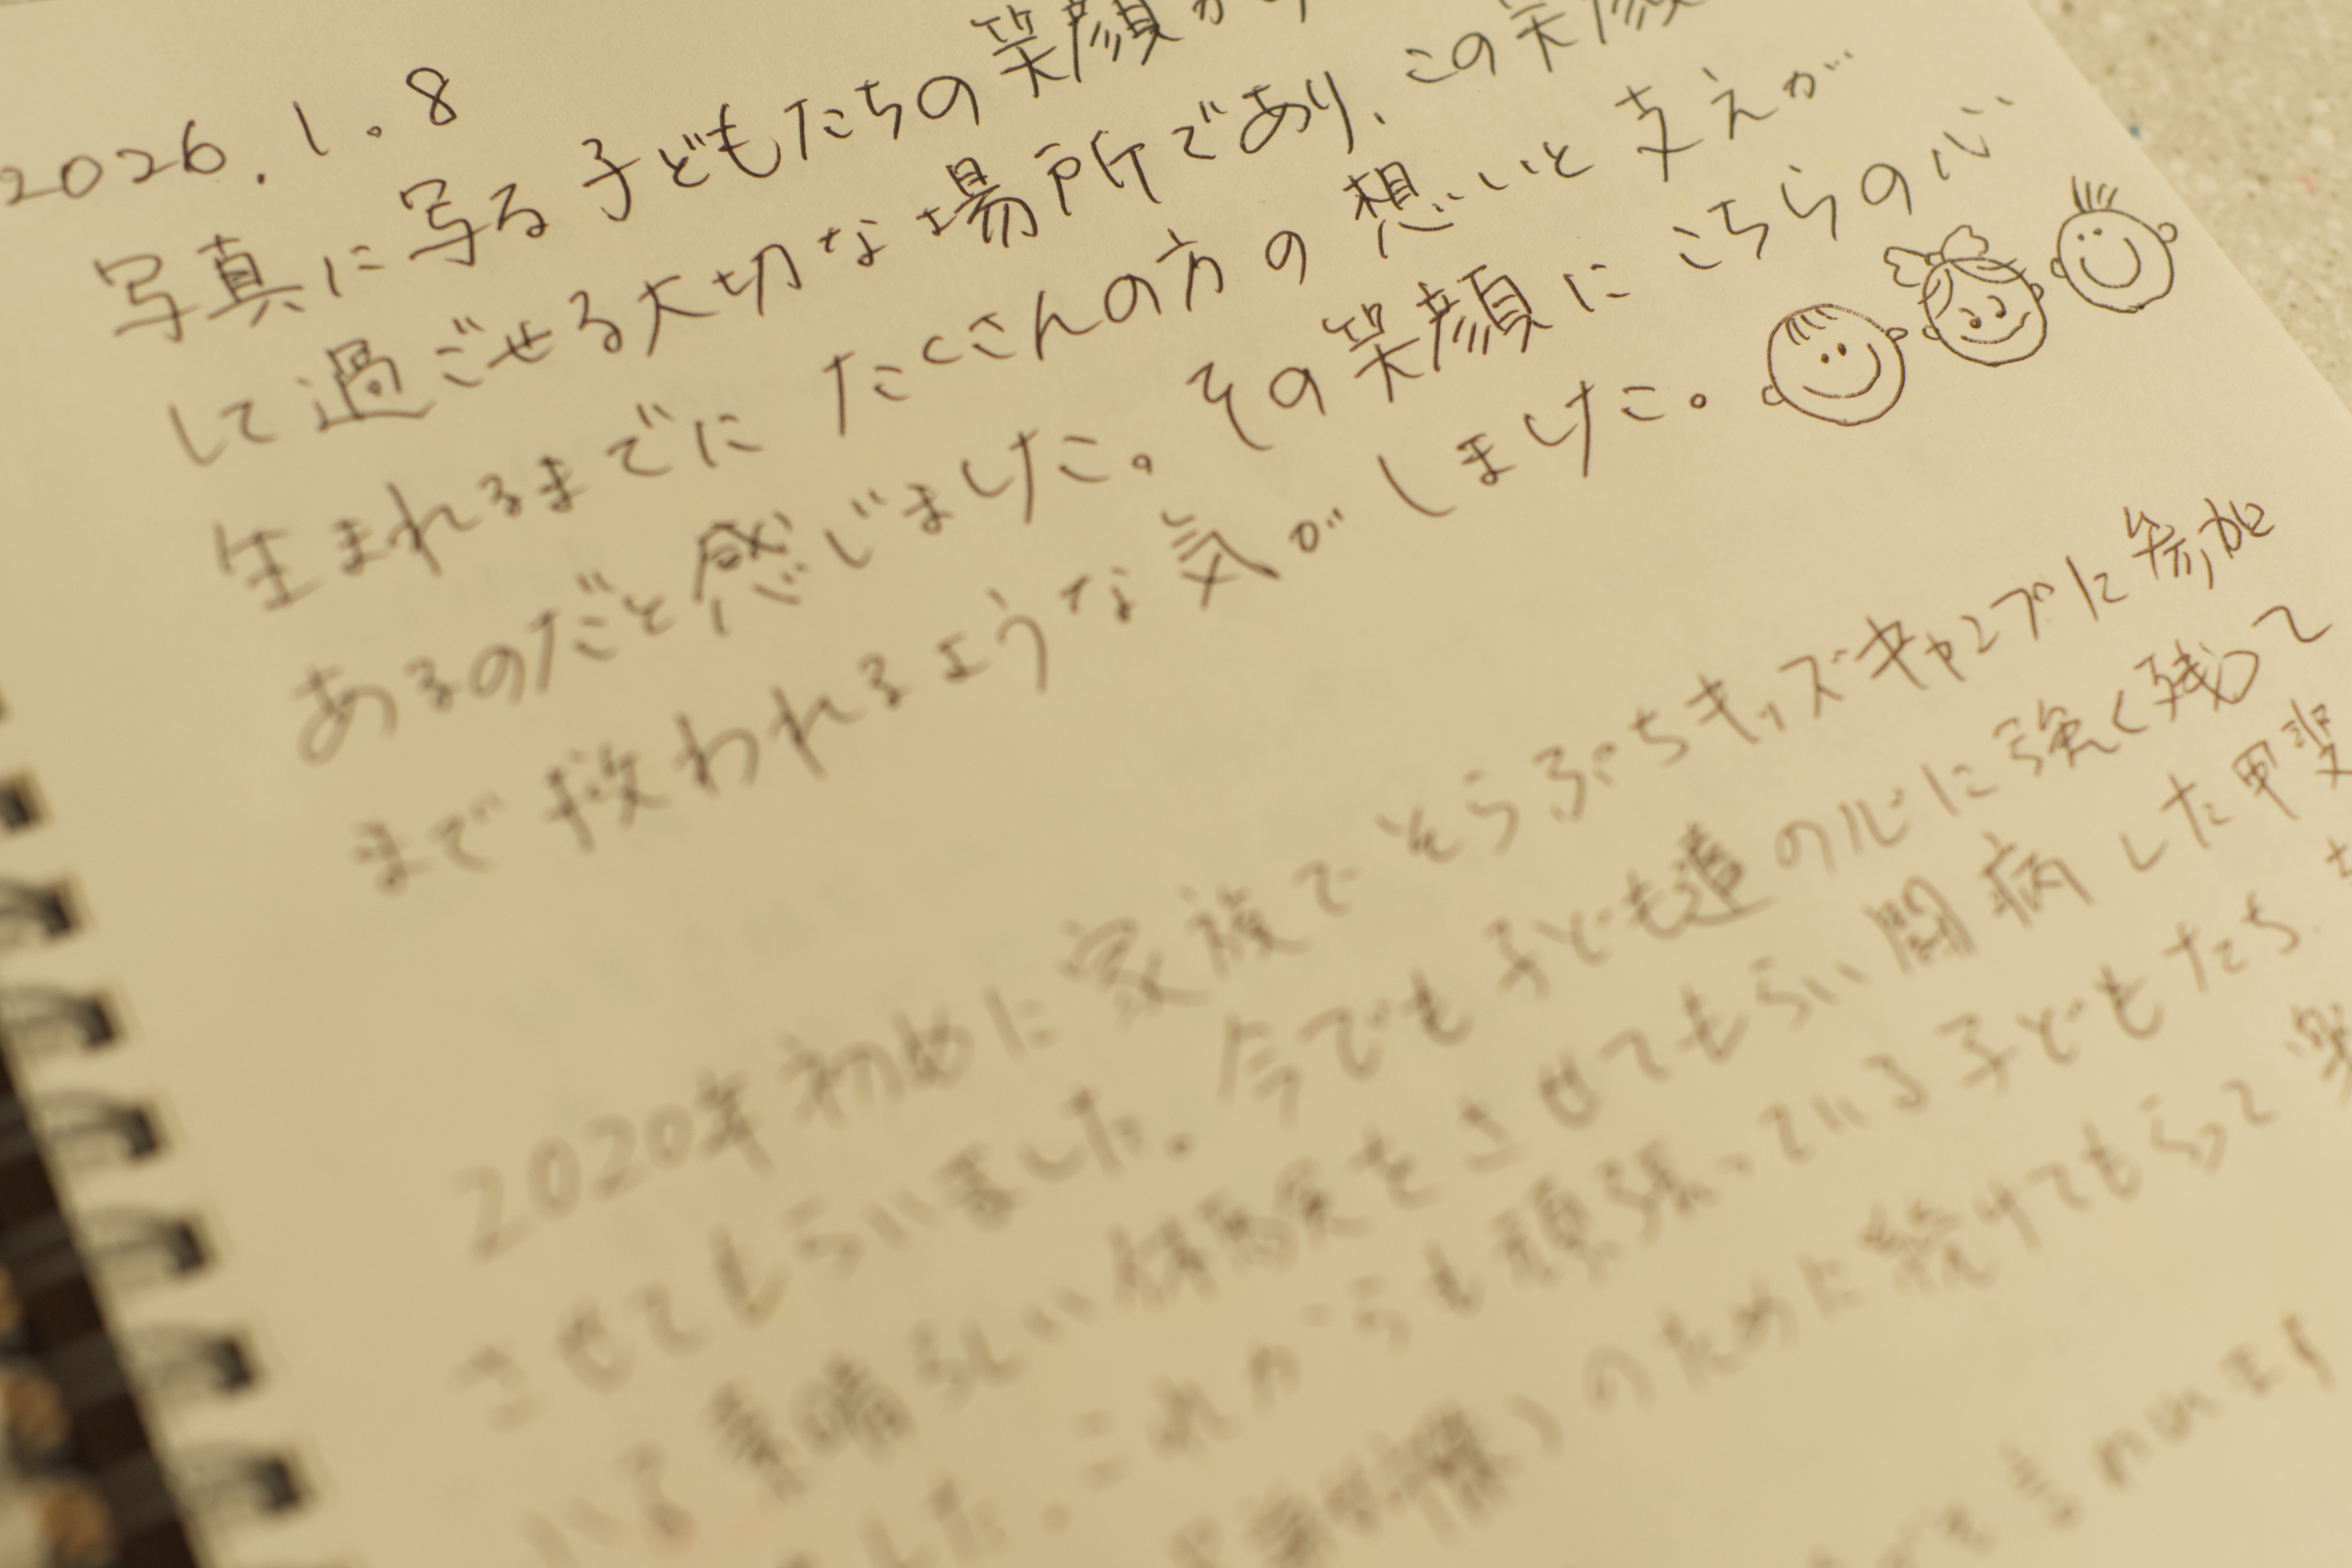 2026.1.8
写真に写る子どもたちの笑顔か
して過ごせる大切な場所であり、この笑顔
生まれるまでに たくさんの方の想いと支えが
あるのだと感じました。その笑顔にこちらの心
まで救われるような気がしました。
2020年初めに家族でそらぷちキッズキャンプに参加
させてもらいました。今でも子ども達の心に強く残って
いる素晴らしい体験をさせてもらい闘病した甲斐
した。これからも頑張っている子どもたち
のために続けてもらって